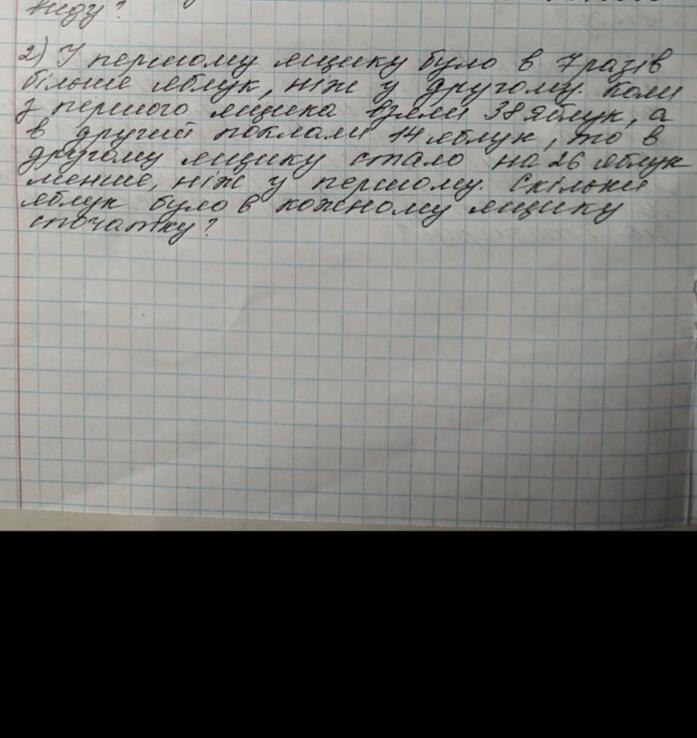 нду?
2) У першому ящику було в 7 разів
більше яблук, ніж у другому. Коли
з першого ящика взяли 38 яблук, а
в другий поклали 14 яблук, то в
другому ящику стало на 26 яблук
менше, ніж у першому. Скільки
яблук було в кожному ящику
спочатку?